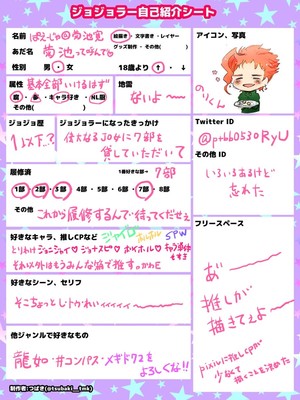 ジョジョラー自己紹介シート
名前
絵描き・文字書き・レイヤー
グッズ制作・その他( )
あだ名 菊池って呼んで
性別 男・女 18歳より ↑・↓
属性 基本全部いけるはず
腐・夢・キャラ好き・NL厨
地雷 ないよ〜
ジョジョ歴
1年以下?
ジョジョラーになったきっかけ
偉大なるJOな人に7部を
貸していただいて
履修済
1番好きな部→ 7部
1部・2部・3部・4部・5部・6部・7部・8部
その他 これから履修するんで待ってくだせぇ
好きなキャラ、推しCPなど
ジャイロ ホルホル SPW
それ以外はもうみんな箱で推す。かわE
好きなシーン、セリフ
そこちょっとLトかわぇぇ
他ジャンルで好きなもの
龍如・#コンパス・メギド72を
よろしくな!!
アイコン、写真
のりくん
Twitter ID
@ptbb0530RyU
その他 ID
いろいろあるけど
忘れた
フリースペース
あ゛ー
推しが
描きてぇよ〜
pixivに推しCPが
少なくて
描くことを決めた
制作者:つばき(@tsubaki__tmk)